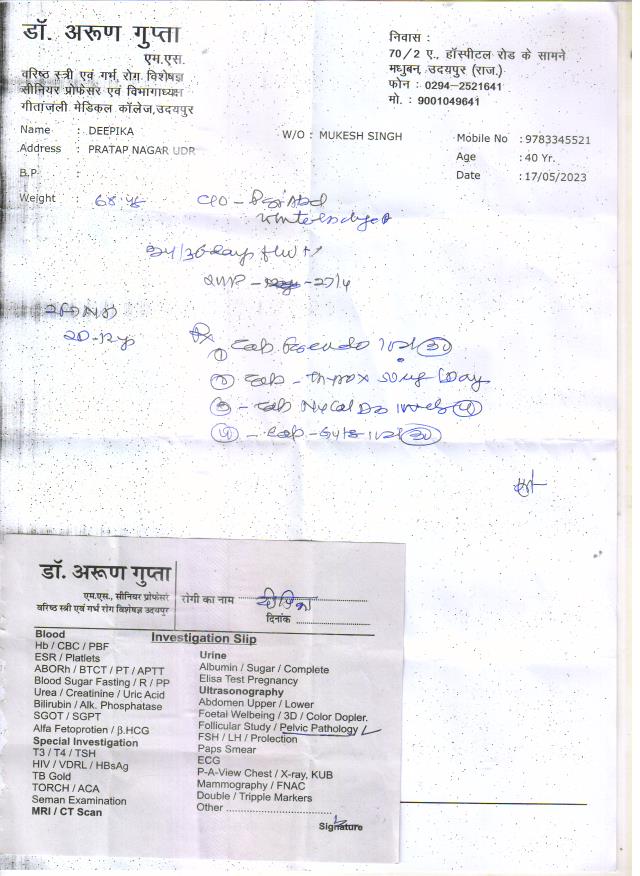 डॉ. अरूण गुप्ता
एम.एस.
वरिष्ठ स्त्री एवं गर्भ, रोग विशेषज्ञ
सीनियर प्रोफेसर एवं विभागाध्यक्ष
गीतांजली मेडिकल कॉलेज,उदयपुर
निवास :
70/2 ए., हॉस्पीटल रोड के सामने
मधुबन, उदयपुर (राज.)
फोन : 0294-2521641
मो. : 9001049641
Name : DEEPIKA
W/O : MUKESH SINGH
Mobile No : 9783345521
Address : PRATAP NAGAR UDR
Age : 40 Yr.
B.P :
Date : 17/05/2023
Weight : 68 kg
C/O -
LMP - 27/4
Rx
① Tab
② Tab - Thyrox 50 mg
③ - Tab
④ - Tab -
डॉ. अरूण गुप्ता
एम.एस., सीनियर प्रोफेसर
वरिष्ठ स्त्री एवं गर्भ रोग विशेषज्ञ उदयपुर
रोगी का नाम दीपिका
दिनांक
Investigation Slip
Blood
Hb / CBC / PBF
ESR / Platlets
ABORh / BTCT / PT / APTT
Blood Sugar Fasting / R / PP
Urea / Creatinine / Uric Acid
Bilirubin / Alk. Phosphatase
SGOT / SGPT
Alfa Fetoprotien / β.HCG
Special Investigation
T3 / T4 / TSH
HIV / VDRL / HBsAg
TB Gold
TORCH / ACA
Seman Examination
MRI / CT Scan
Urine
Albumin / Sugar / Complete
Elisa Test Pregnancy
Ultrasonography
Abdomen Upper / Lower
Foetal Welbeing / 3D / Color Dopler.
Follicular Study / Pelvic Pathology
FSH / LH / Prolection
Paps Smear
ECG
P-A-View Chest / X-ray, KUB
Mammography / FNAC
Double / Tripple Markers
Other
Signature